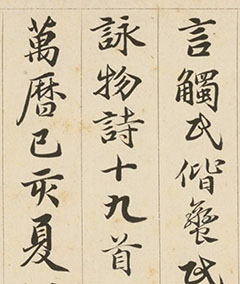 言觸氏偕蠻氏
詠物詩十九首
萬曆己亥夏